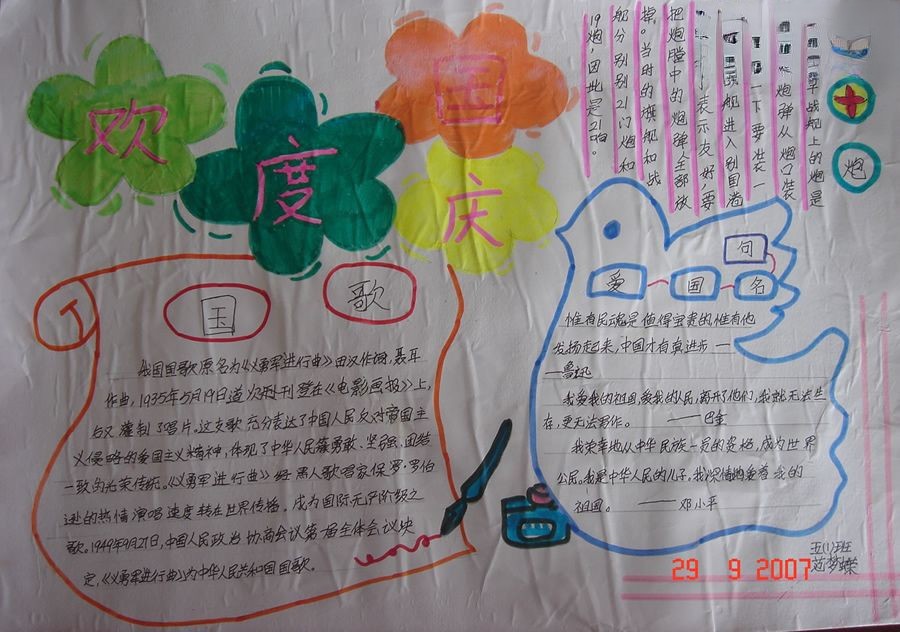 欢度国庆
炮
军战舰上的炮是
炮弹从炮口装
一下要装一
战舰进入别国港
表示友好,要
把炮膛中的炮弹全部放
掉。当时的旗舰和战
舰分别别21门炮和
19炮,因此是21响。
国歌
我国国歌原名为《义勇军进行曲》田汉作词,聂耳
作曲,1935年5月19日首次
刊登在《电影画报》上,
后又灌制了唱片。这支歌充分表达了中国人民反对帝国主
义侵略的爱国主义精神,体现了中华人民族勇敢、坚强、团结
一致的光荣传统。《义勇军进行曲》经黑人歌唱家保罗·罗伯
逊的热情演唱速度转在世界传播。成为国际无产阶级之
歌。1949年9月27日,中国人民政治协商会议第一届全体会议决
定,《义勇军进行曲》为中华人民共和国国歌。
爱国名句
惟有民魂是值得宝贵的,惟有他
发扬起来,中国才有真进步——
——鲁迅
我爱我的祖国,爱我的人民,离开了他们,我就无法生
存,更无法写作。——巴金
我荣幸地从中华民族一员的资格,成为世界
公民。我是中华人民的儿子,我深情地爱着我的
祖国。——邓小平
五(1)班
范梦蝶
29 9 2007